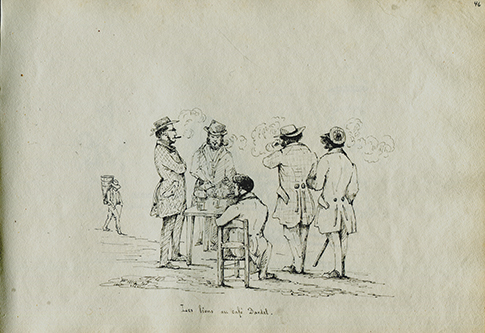 46
Les lions au café Dardel.